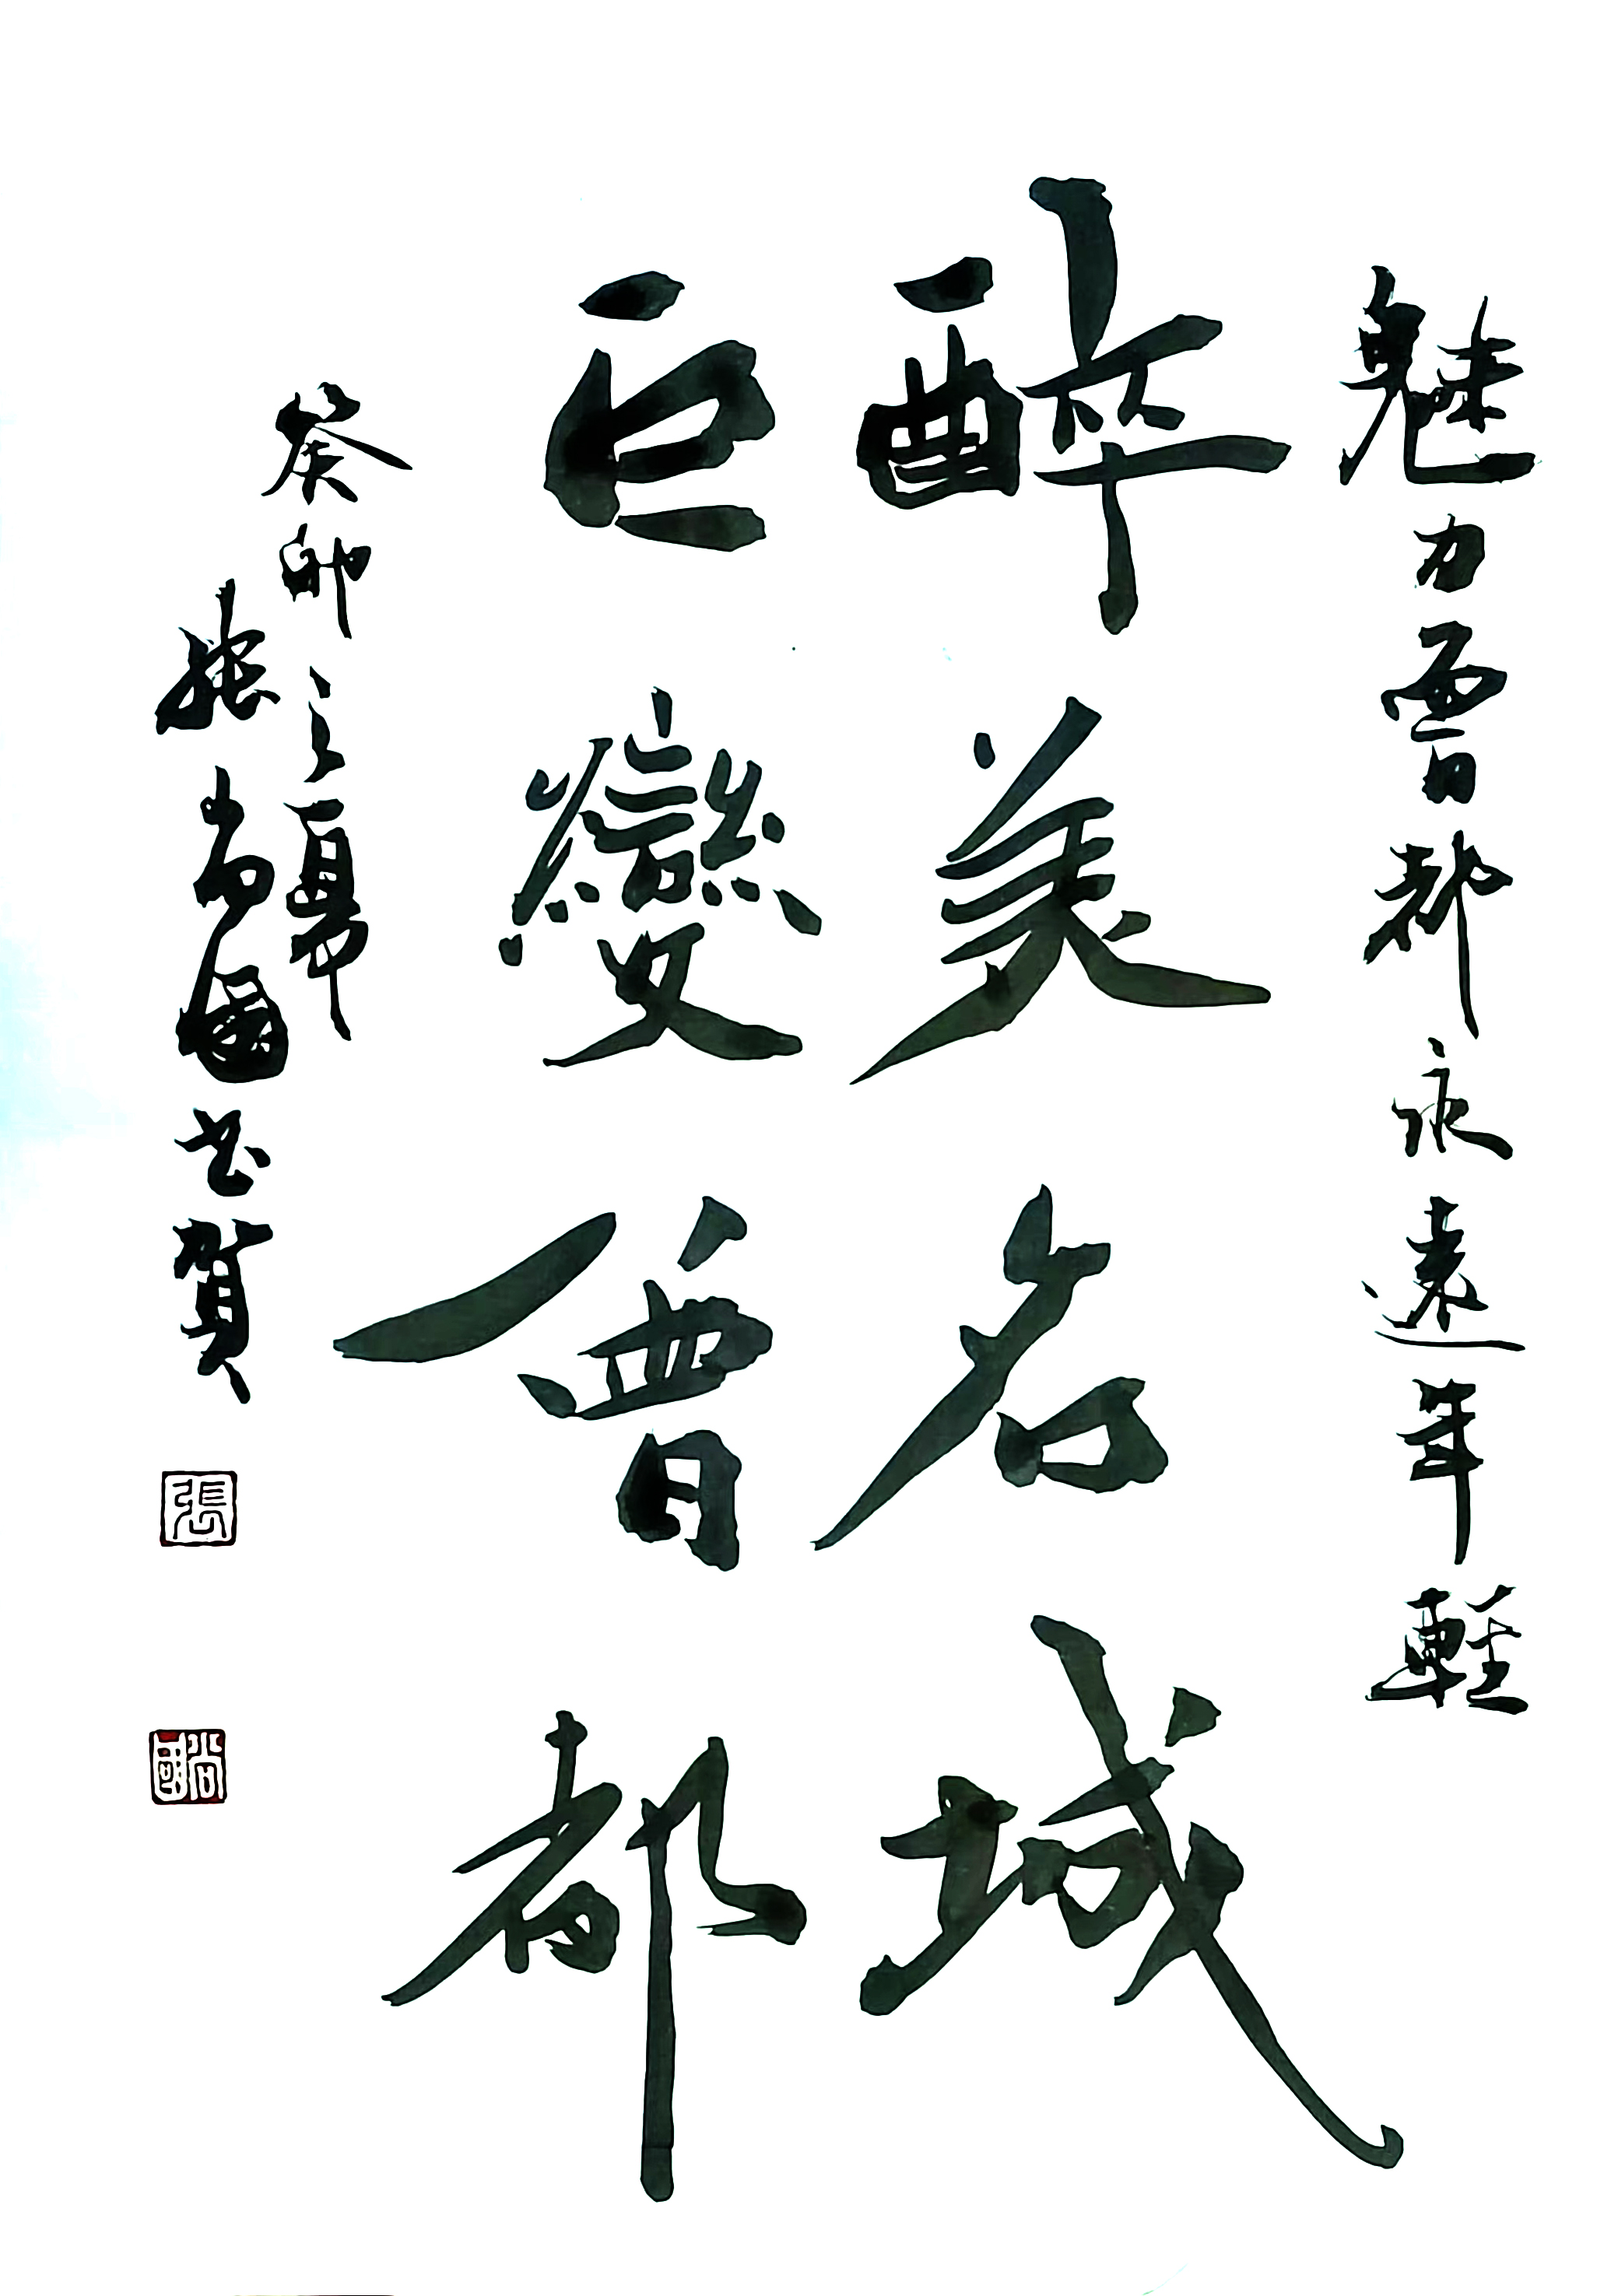 魅力曾都永遠年輕
醉美名城
巨變曾都
癸卯之夏
張尚國書賀
張
尚國